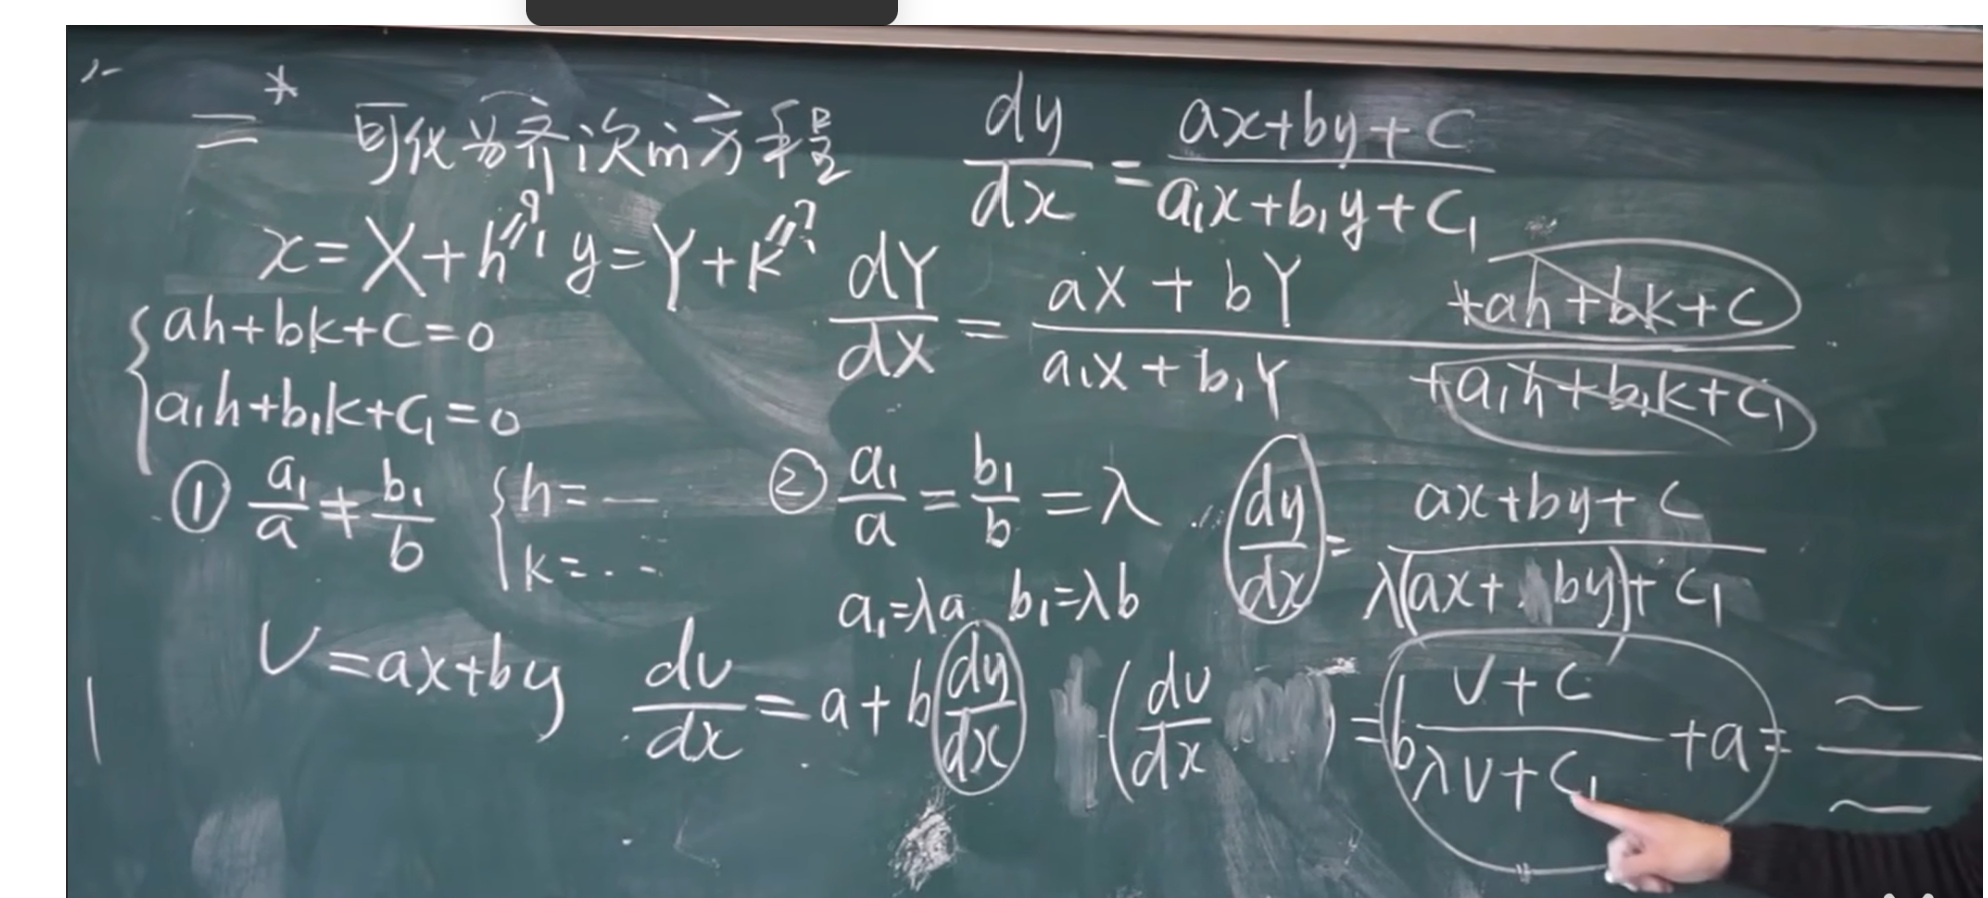 二* 可化为齐次的方程 dy/dx = (ax+by+C)/(a₁x+b₁y+C₁)
x=X+h ? , y=Y+k ? dY/dX = (aX+bY+ah+bk+C)/(a₁X+b₁Y+a₁h+b₁k+C₁)
{ ah+bk+C=0
a₁h+b₁k+C₁=0
① a₁/a ≠ b₁/b { h=— k=... ② a₁/a = b₁/b = λ dy/dx = (ax+by+C)/(λ(ax+by)+C₁)
a₁=λa b₁=λb
V=ax+by dv/dx = a+b dy/dx (dv/dx ) = b (V+C)/(λV+C₁) +a = ~/~